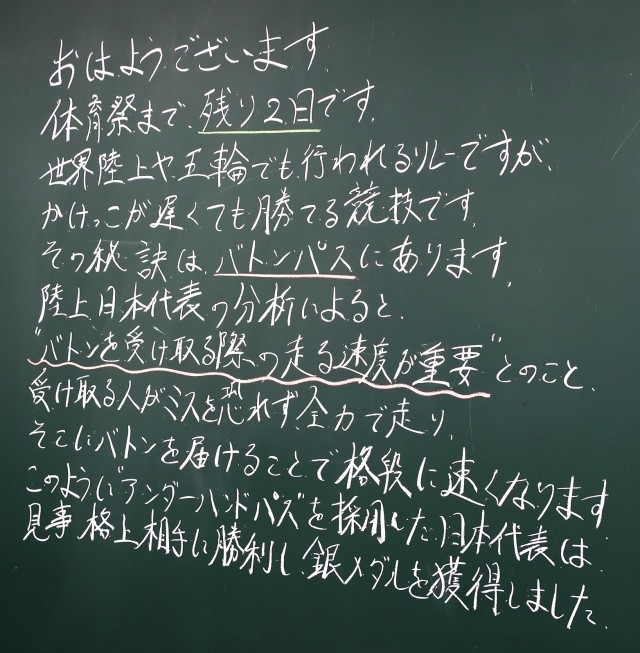 おはようございます
体育祭まで、残り2日です。
世界陸上や五輪でも行われるリレーですが、
かけっこが遅くても勝てる競技です。
その秘訣は、バトンパスにあります。
陸上日本代表の分析によると、
"バトンを受け取る際の走る速度が重要"とのこと、
受け取る人がミスを恐れず全力で走り、
そこにバトンを届けることで格段に速くなります
このように"アンダーハンドパス"を採用した日本代表は
見事、格上相手に勝利し、銀メダルを獲得しました。